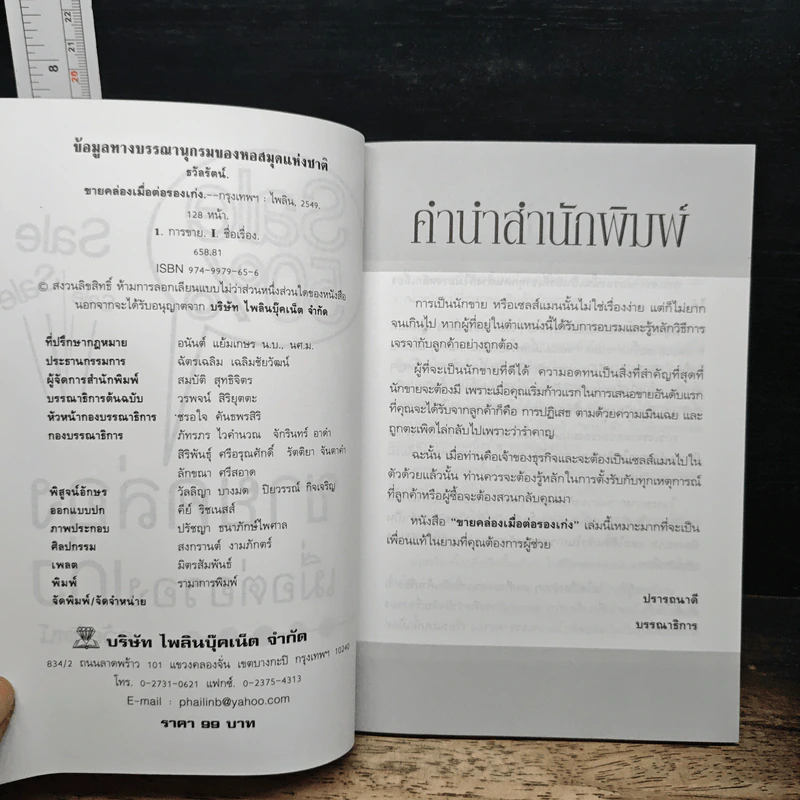 22
21
8
20
ข้อมูลทางบรรณานุกรมของหอสมุดแห่งชาติ
ธวัลรัตน์.
ขายคล่องเมื่อต่อรองเก่ง.--กรุงเทพฯ : ไพลิน, 2549.
128 หน้า.
1. การขาย. I. ชื่อเรื่อง.
658.81
ISBN 974-9979-65-6
© สงวนลิขสิทธิ์ ห้ามการลอกเลียนแบบไม่ว่าส่วนหนึ่งส่วนใดของหนังสือ
นอกจากจะได้รับอนุญาตจาก บริษัท ไพลินบุ๊คเน็ต จำกัด
ที่ปรึกษากฎหมาย อนันต์ แย้มเกษร น.บ., นศ.ม.
ประธานกรรมการ ฉัตรเฉลิม เฉลิมชัยวัฒน์
ผู้จัดการสำนักพิมพ์ สมบัติ สุทธิจิตร
บรรณาธิการต้นฉบับ วรพจน์ สิริยุตตะ
หัวหน้ากองบรรณาธิการ ชรอใจ คันธพรสิริ
กองบรรณาธิการ ภัทรภร ไวคำนวณ จักรินทร์ อาดำ
สิริพันธุ์ ศรีอรุณศักดิ์ รัตติยา จันดาคำ
ลักขณา ศรีสอาด
พิสูจน์อักษร วัลลิญา บางมด ปิยวรรณ์ กิจเจริญ
ออกแบบปก คีย์ ริชเนสส์
ภาพประกอบ ปรัชญา ธนาภักษ์ไพศาล
ศิลปกรรม สงกรานต์ งามภักตร์
เพลต มิตรสัมพันธ์
พิมพ์ รามาการพิมพ์
จัดพิมพ์/จัดจำหน่าย
บริษัท ไพลินบุ๊คเน็ต จำกัด
834/2 ถนนลาดพร้าว 101 แขวงคลองจั่น เขตบางกะปิ กรุงเทพฯ 10240
โทร. 0-2731-0621 แฟกซ์. 0-2375-4313
E-mail : phailinb@yahoo.com
ราคา 99 บาท
คำนำสำนักพิมพ์
การเป็นนักขาย หรือเซลส์แมนนั้นไม่ใช่เรื่องง่าย แต่ก็ไม่ยาก
จนเกินไป หากผู้ที่อยู่ในตำแหน่งนี้ได้รับการอบรมและรู้หลักวิธีการ
เจรจากับลูกค้าอย่างถูกต้อง
ผู้ที่จะเป็นนักขายที่ดีได้ ความอดทนเป็นสิ่งที่สำคัญที่สุดที่
นักขายจะต้องมี เพราะเมื่อคุณเริ่มก้าวแรกในการเสนอขายอันดับแรก
ที่คุณจะได้รับจากลูกค้าก็คือ การปฏิเสธ ตามด้วยความเมินเฉย และ
ถูกตะเพิดไล่กลับไปเพราะว่ารำคาญ
ฉะนั้น เมื่อท่านคือเจ้าของธุรกิจและจะต้องเป็นเซลส์แมนไปใน
ตัวด้วยแล้วนั้น ท่านควรจะต้องรู้หลักในการตั้งรับกับทุกเหตุการณ์
ที่ลูกค้าหรือผู้ซื้อจะต้องสวนกลับคุณมา
หนังสือ “ขายคล่องเมื่อต่อรองเก่ง” เล่มนี้เหมาะมากที่จะเป็น
เพื่อนแท้ในยามที่คุณต้องการผู้ช่วย
ปรารถนาดี
บรรณาธิการ